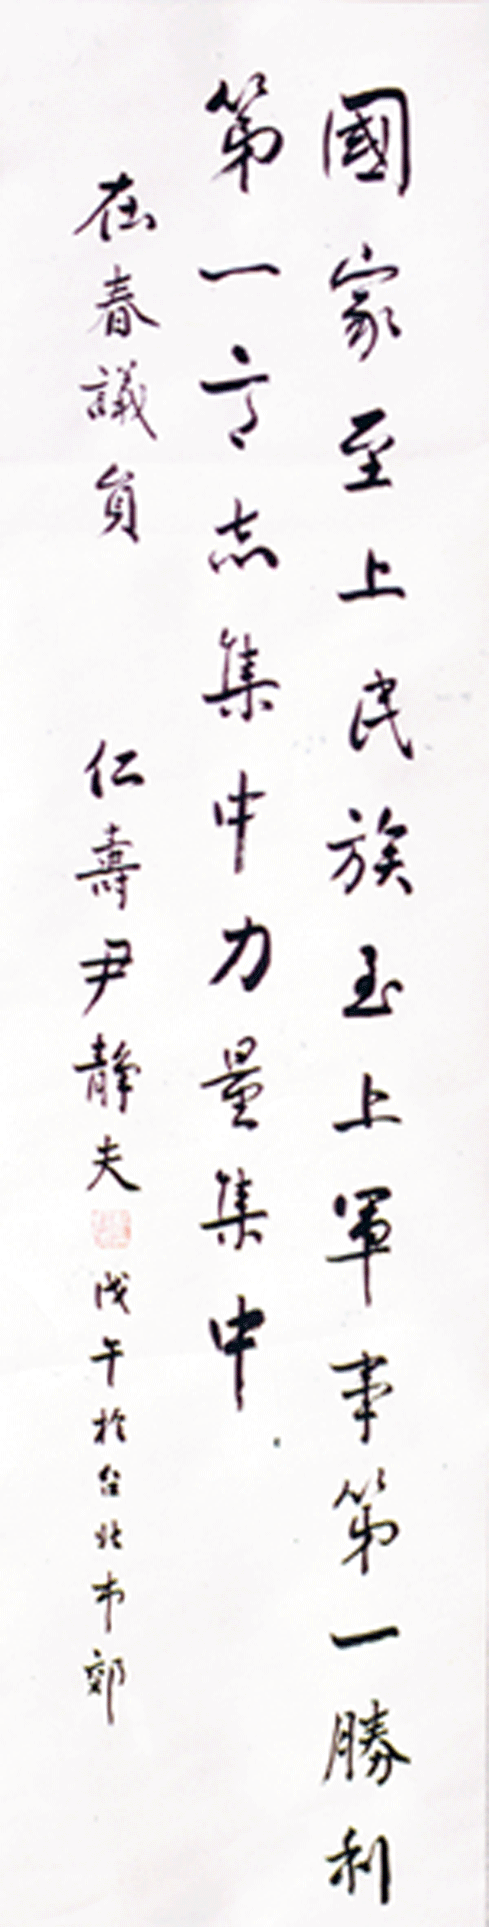 國家至上民族至上軍事第一勝利
第一意志集中力量集中
在春議員 仁壽尹靜夫 戊午於台北市郊